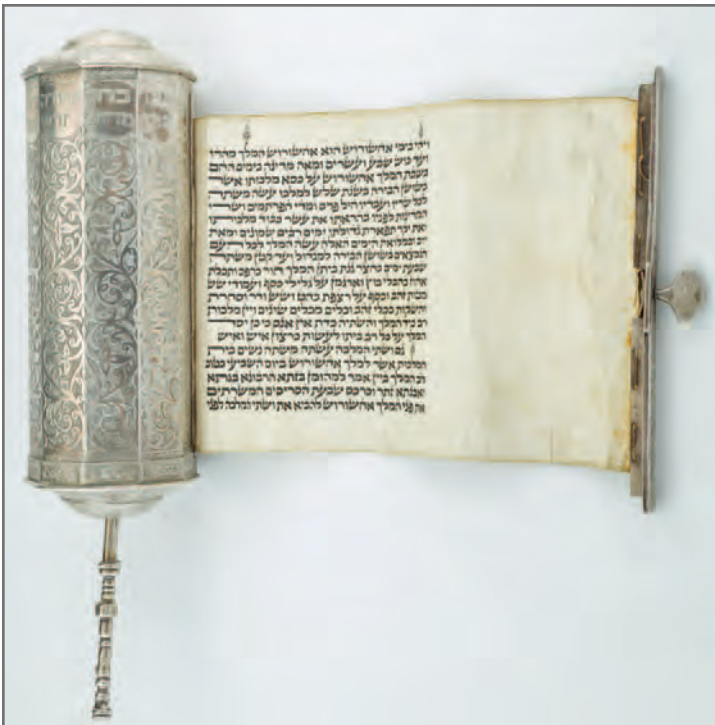 ויהי בימי אחשורוש הוא אחשורוש המלך מהדו
ועד כוש שבע ועשרים ומאה מדינה בימים ההם
כשבת המלך אחשורוש על כסא מלכותו אשר
בשושן הבירה בשנת שלש למלכו עשה משתה
לכל שריו ועבדיו חיל פרס ומדי הפרתמים ושרי
המדינות לפניו בהראתו את עשר כבוד מלכותו
ואת יקר תפארת גדולתו ימים רבים שמונים ומאת
יום ובמלואת הימים האלה עשה המלך לכל העם
הנמצאים בשושן הבירה למגדול ועד קטן משתה
שבעת ימים בחצר גנת ביתן המלך חור כרפס ותכלת
אחוז בחבלי בוץ וארגמן על גלילי כסף ועמודי שש
מטות זהב וכסף על רצפת בהט ושש ודר וסחרת
והשקות בכלי זהב וכלים מכלים שונים ויין מלכות
רב כיד המלך והשתיה כדת אין אנס כי כן יסד
המלך על כל רב ביתו לעשות כרצון איש ואיש
גם ושתי המלכה עשתה משתה נשים בית
המלכות אשר למלך אחשורוש ביום השביעי כטוב
לב המלך ביין אמר למהומן בזתא חרבונא בגתא
ואבגתא זתר וכרכס שבעת הסריסים המשרתים
את פני המלך אחשורוש להביא את ושתי המלכה לפני